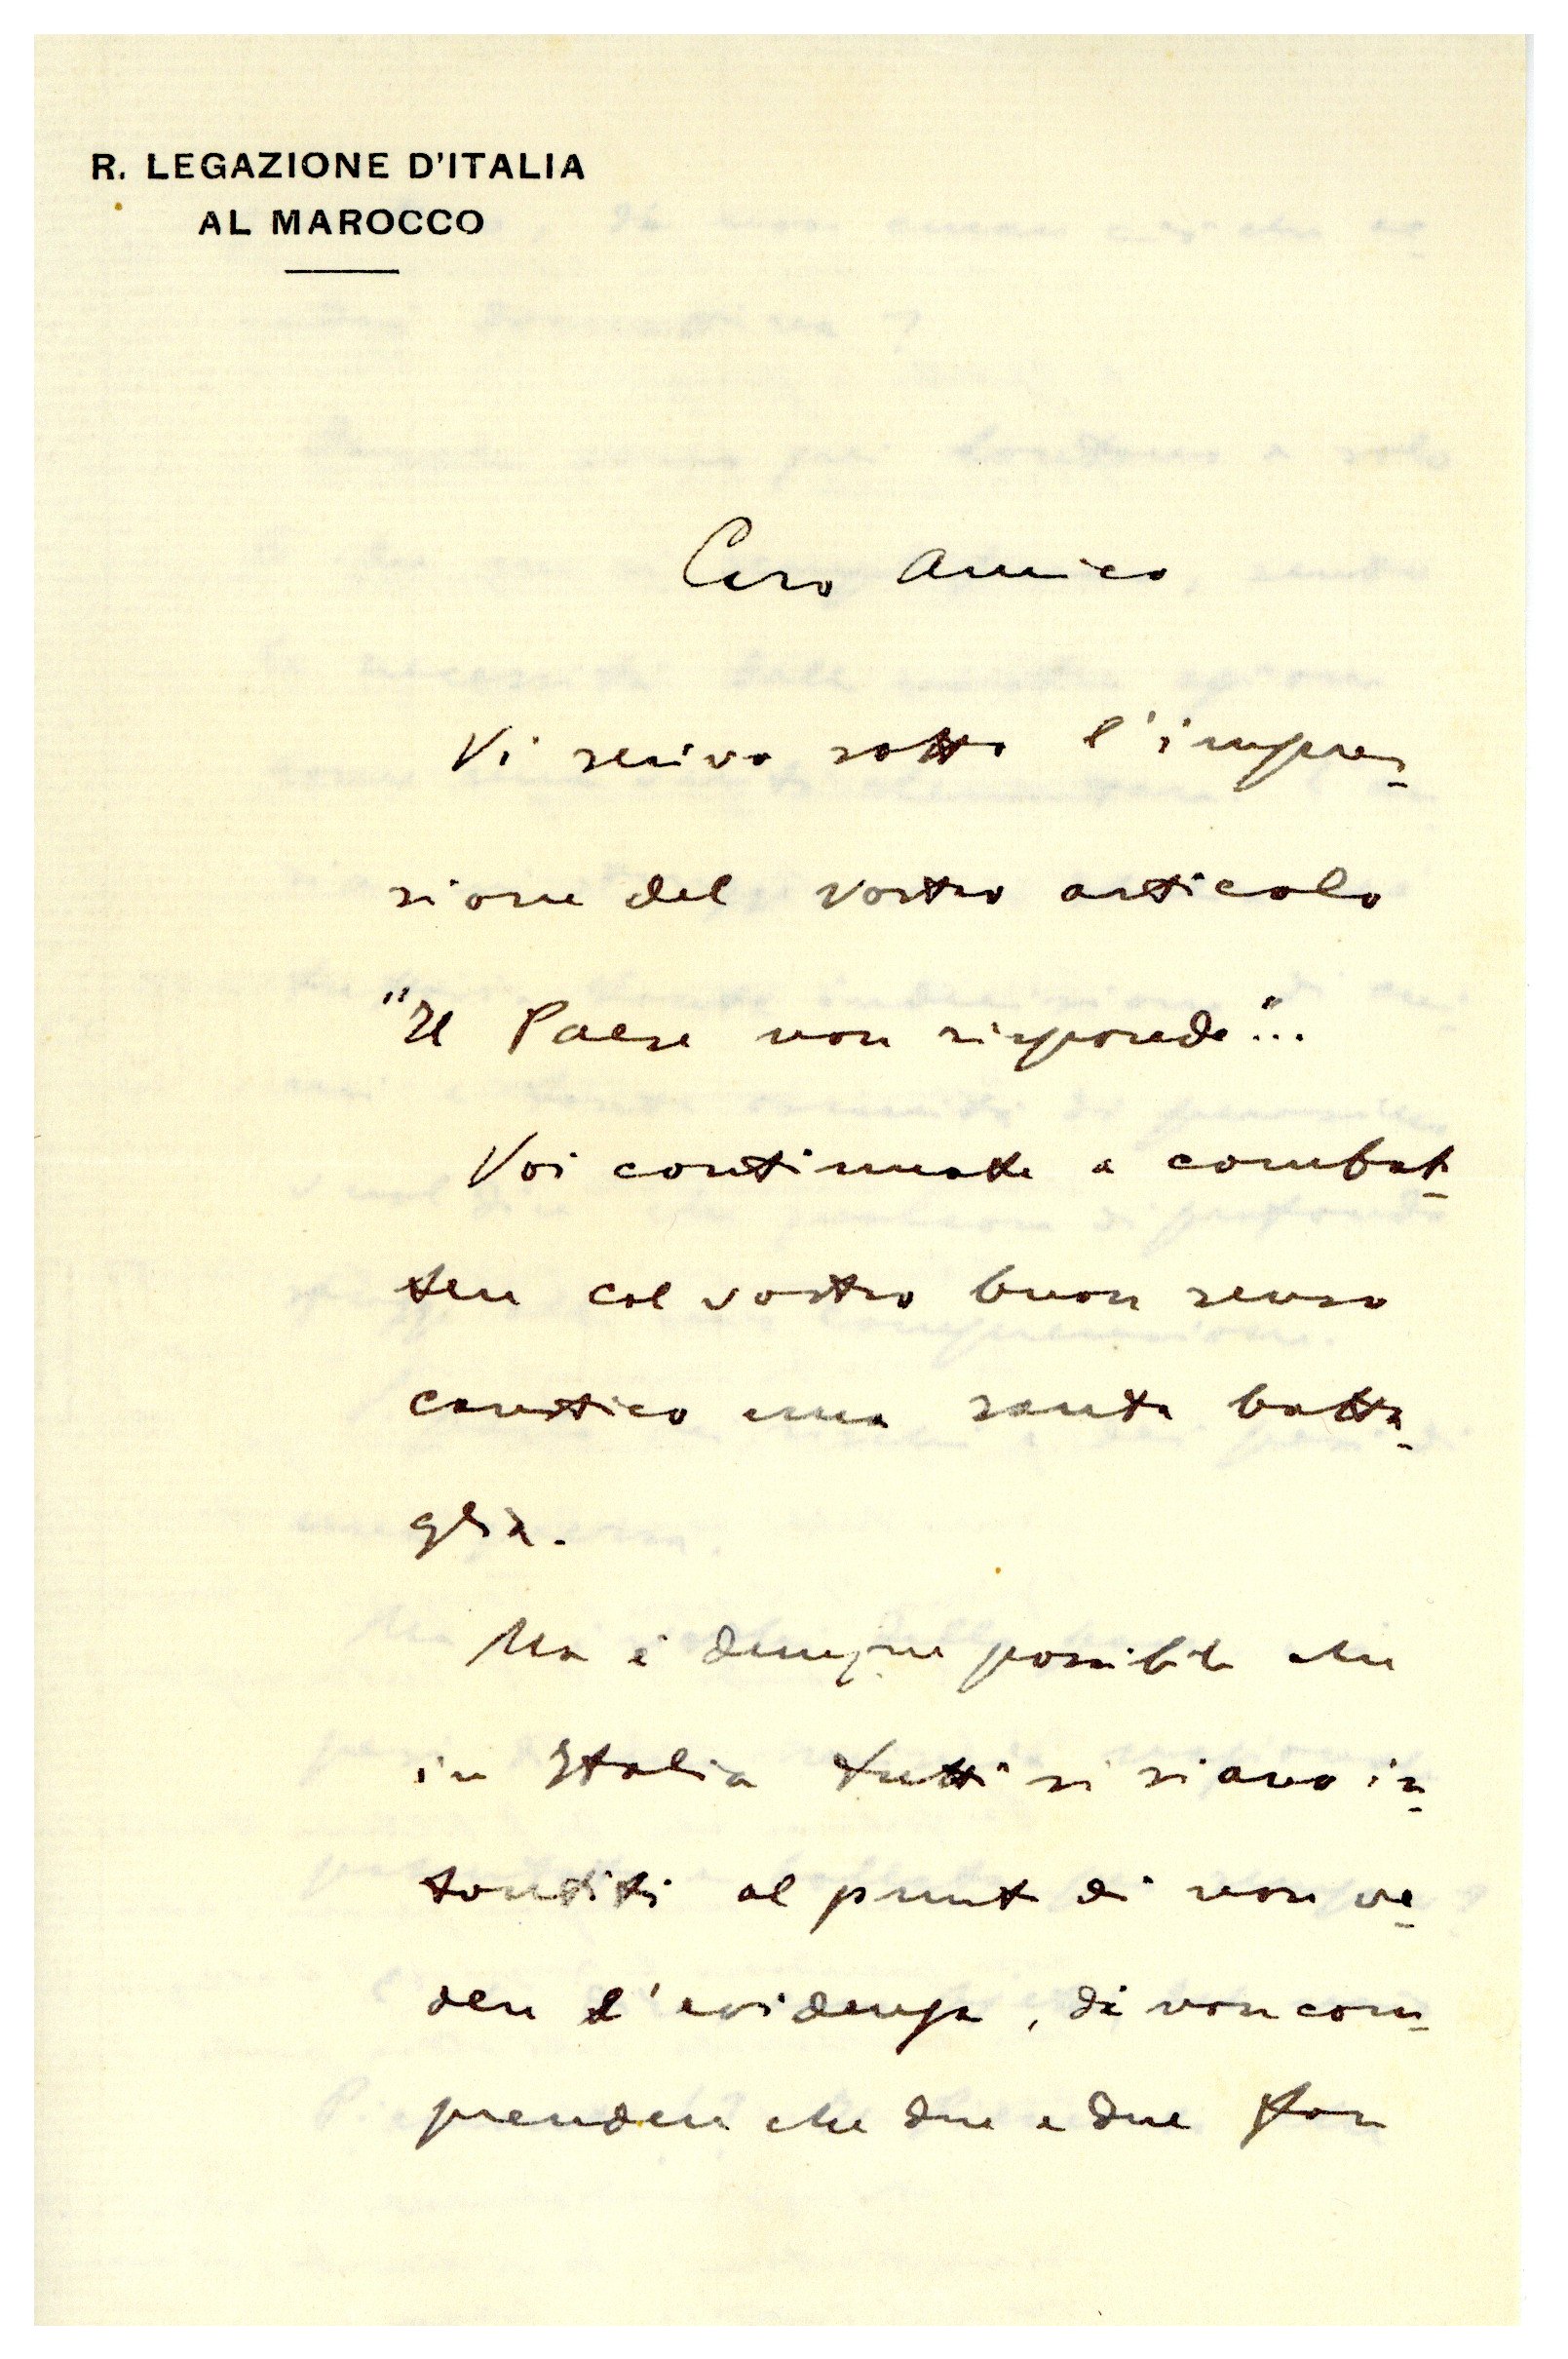 R. LEGAZIONE D'ITALIA
AL MAROCCO
Caro Amico
Vi scrivo sotto l'impres-
sione del vostro articolo
"Il Paese non risponde"...
Voi continuate a combat-
tere col vostro buon senso
caustico una santa batta-
glia.
Ma è dunque possibile che
in Italia tutti si siano in-
tontiti al punto di non ve-
dere l'evidenza, di non com-
prendere che due e due fan